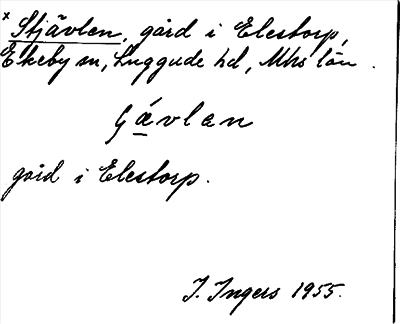 x Stjävlen, gård i Elestorp,
Ekeby sn, Luggude hd, Mhs län.
Gävlan
gård i Elestorp.
I. Ingers 1955.